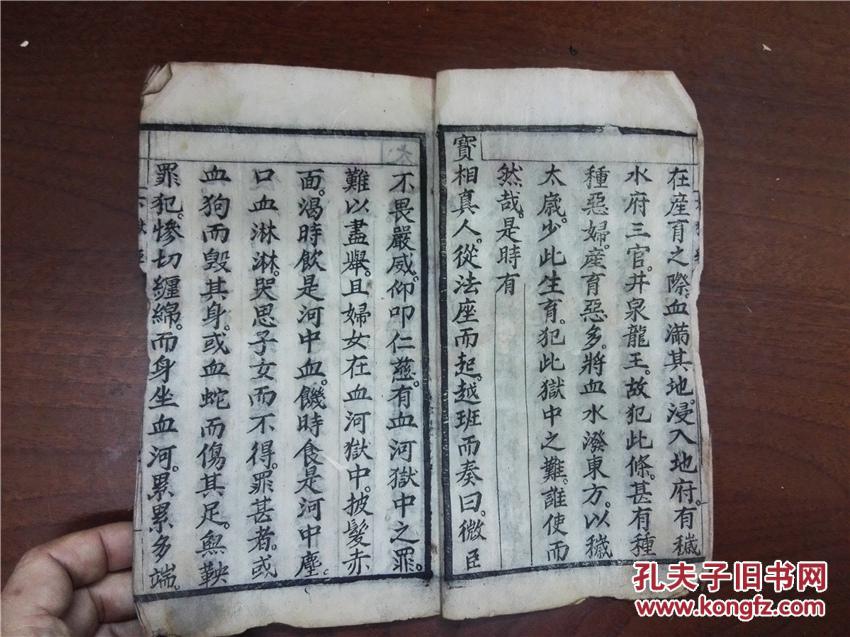 在產育之際。血滿其地。浸入地府。有穢
水府三官。井泉龍王。故犯此條。甚有種
種惡婦。產育惡多。將血水潑東方。以穢
太歲。少此生育。犯此獄中之難。誰使而
然哉。是時有
寶相真人。從法座而起。越班而奏曰。微臣
不畏嚴威。仰叩仁慈。有血河獄中之罪。
難以盡舉。且婦女在血河獄中。披髮赤
面。渴時飲是河中血。饑時食是河中塵。
口血淋淋。哭思子女而不得。罪甚者。或
血狗而毀其身。或血蛇而傷其足。無鞅
罪犯。慘切纏綿。而身坐血河。累累多端。
孔夫子旧书网
www.kongfz.com